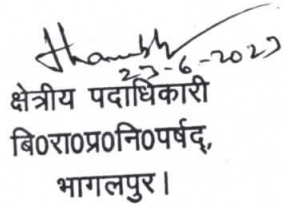 23-6-2023
क्षेत्रीय पदाधिकारी
बि0रा0प्र0नि0पर्षद्,
भागलपुर।